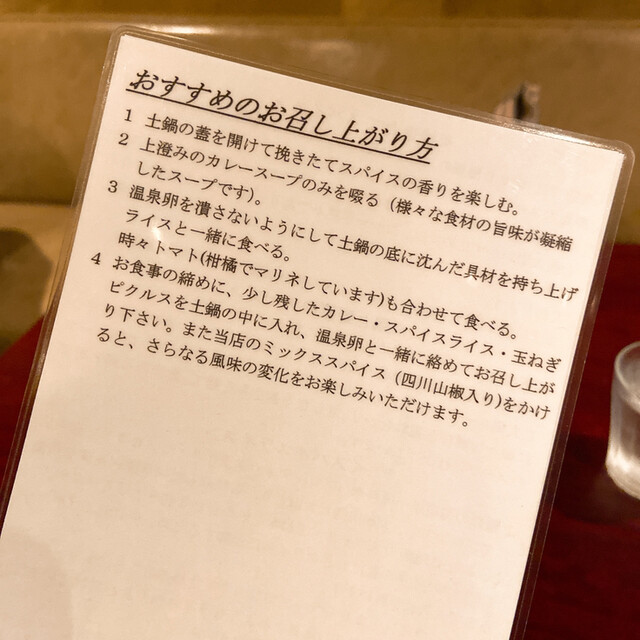 おすすめのお召し上がり方
1 土鍋の蓋を開けて挽きたてスパイスの香りを楽しむ。
2 上澄みのカレースープのみを啜る（様々な食材の旨味が凝縮
したスープです）。
3 温泉卵を潰さないようにして土鍋の底に沈んだ具材を持ち上げ
ライスと一緒に食べる。
時々トマト(柑橘でマリネしています)も合わせて食べる。
4 お食事の締めに、少し残したカレー・スパイスライス・玉ねぎ
ピクルスを土鍋の中に入れ、温泉卵と一緒に絡めてお召し上が
り下さい。また当店のミックススパイス（四川山椒入り)をかけ
ると、さらなる風味の変化をお楽しみいただけます。